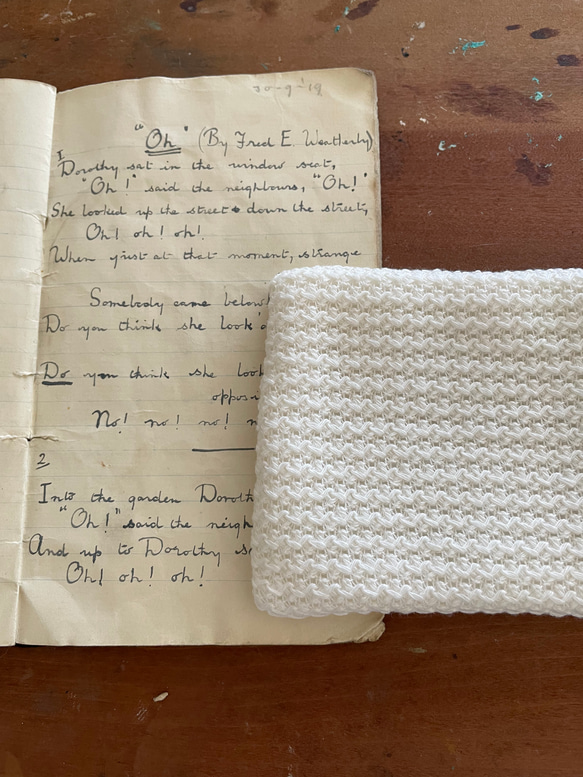 30-9-'19
"Oh" (By Fred E. Weatherly)
1
Dorothy sat in the window seat,
"Oh!" said the neighbours, "Oh!"
She looked up the street & down the street,
Oh! oh! oh!
When just at that moment, strange
Somebody came below
Do you think she look'd
Do you think she
No! no! no!
2
Into the garden
"Oh!" said the
And up to Dorothy
Oh! oh! oh!